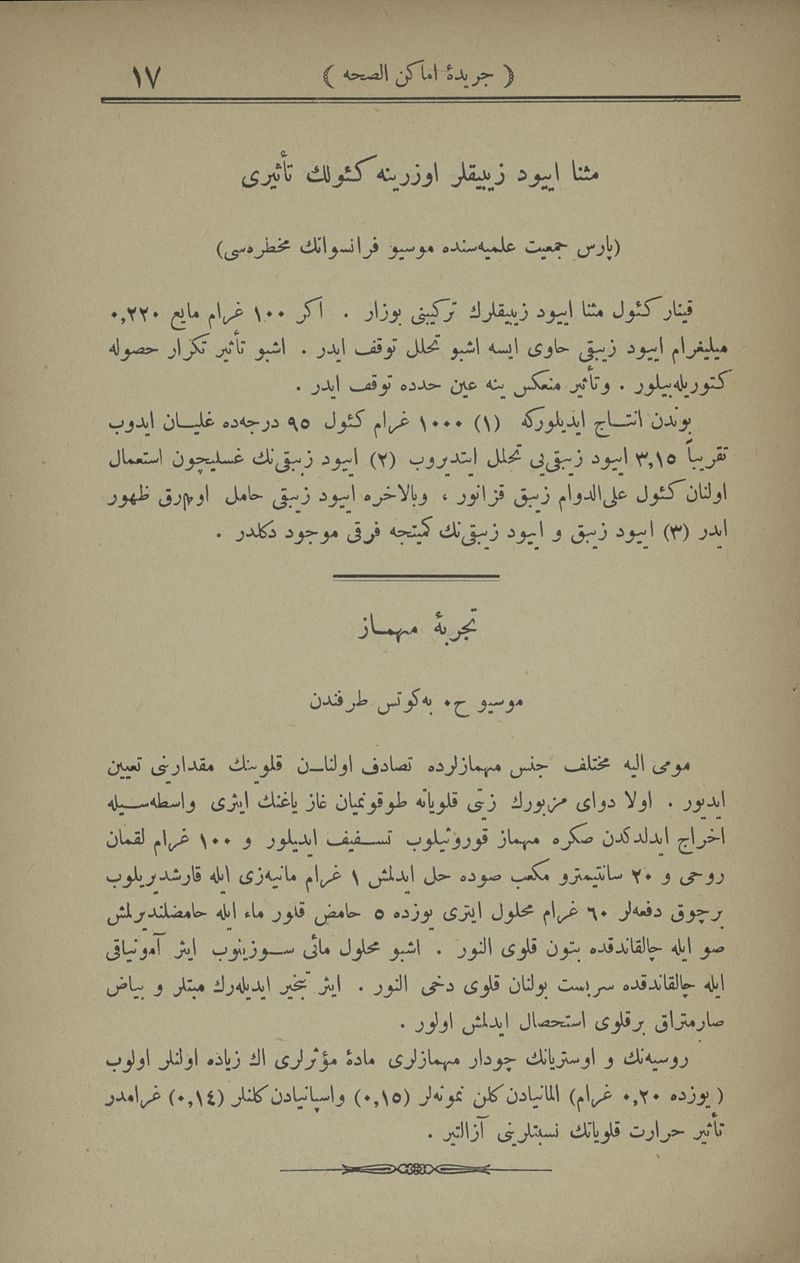 ( جريدهٔ اماكن الصحه ) ١٧
مثنا ايیود زيبقلر اوزرينه كئولك تأثيرى
(پارس جمعيت علميه‌سنده موسيو فرانسوانك مخطره‌سى)
قينار كئول مثنا ايیود زيبقلرك تركيبنى بوزار . اكر ١٠٠ غرام مايع ٠,٢٢٠
ميليغرام ايیود زيبقى حاوى ايسه اشبو تحلل توقف ايدر . اشبو تأثير تكرار حصوله
كتوريله‌بيلور . وتأثير منعكس ينه عين حدده توقف ايدر .
بوندن انتـاج ايديلوركه (١) ١٠٠٠ غرام كئول ٩٥ درجه‌ده غليـان ايدوب
تقريباً ٣,١٥ ايیود زيبقى‌يى تحلل ايتديروب (٢) ايیود زيبقى‌نك غسليچون استعمال
اولنان كئول على‌الدوام زيبق قزانور ، وبالاخره ايیود زيبقى حامل اوله‌رق ظهور
ايدر (٣) ايیود زيبق و ايیود زيبقى‌نك كميتجه فرقى موجود دكلدر .
تجربهٔ مهمـاز
موسيو ح٠ به‌كوتس طرفندن
مومى اليه مختلف جنس مهمازلرده تصادف اولنـان قلوينك مقدارينى تعيين
ايديور . اولا دواى مزبورك زيتى قلوياته طوقونميان غاز ياغنك ايترى واسطه‌سـيله
اخراج ايدلدكدن صكره مهماز قوروتيلوب تسـفيف ايديلور و ١٠٠ غرام لقمان
روحى و ٢٠ سانتيمترو مكعب صوده حل ايدلمش ١ غرام مانيه‌زى ايله قارشديريلوب
برچوق دفعه‌لر ٦٠ غرام محلول ايترى يوزده ٥ حامض قلور ماء ايله حامضلنديرلمش
صو ايله چالقاندقده بتون قلوى النور . اشبو محلول مائى سـوزينوب ايتر آمونياقى
ايله چالقاندقده سربست بولنان قلوى دخى النور . ايتر تبخير ايديله‌رك مبتلر و بياض
صارمتراق برقلوى استحصال ايدلمش اولور .
روسيه‌نك و اوستريانك چودار مهمازلرى مادهٔ مؤثرلرى اك زياده اولنلر اولوب
(يوزده ٠,٢٠ غرام) المانيادن كلن نمونه‌لر (٠,١٥) واسپانيادن كلنلر (٠,١٤) غرامدر
تأثير حرارت قلوياتك نسبتلرينى آزالتير .